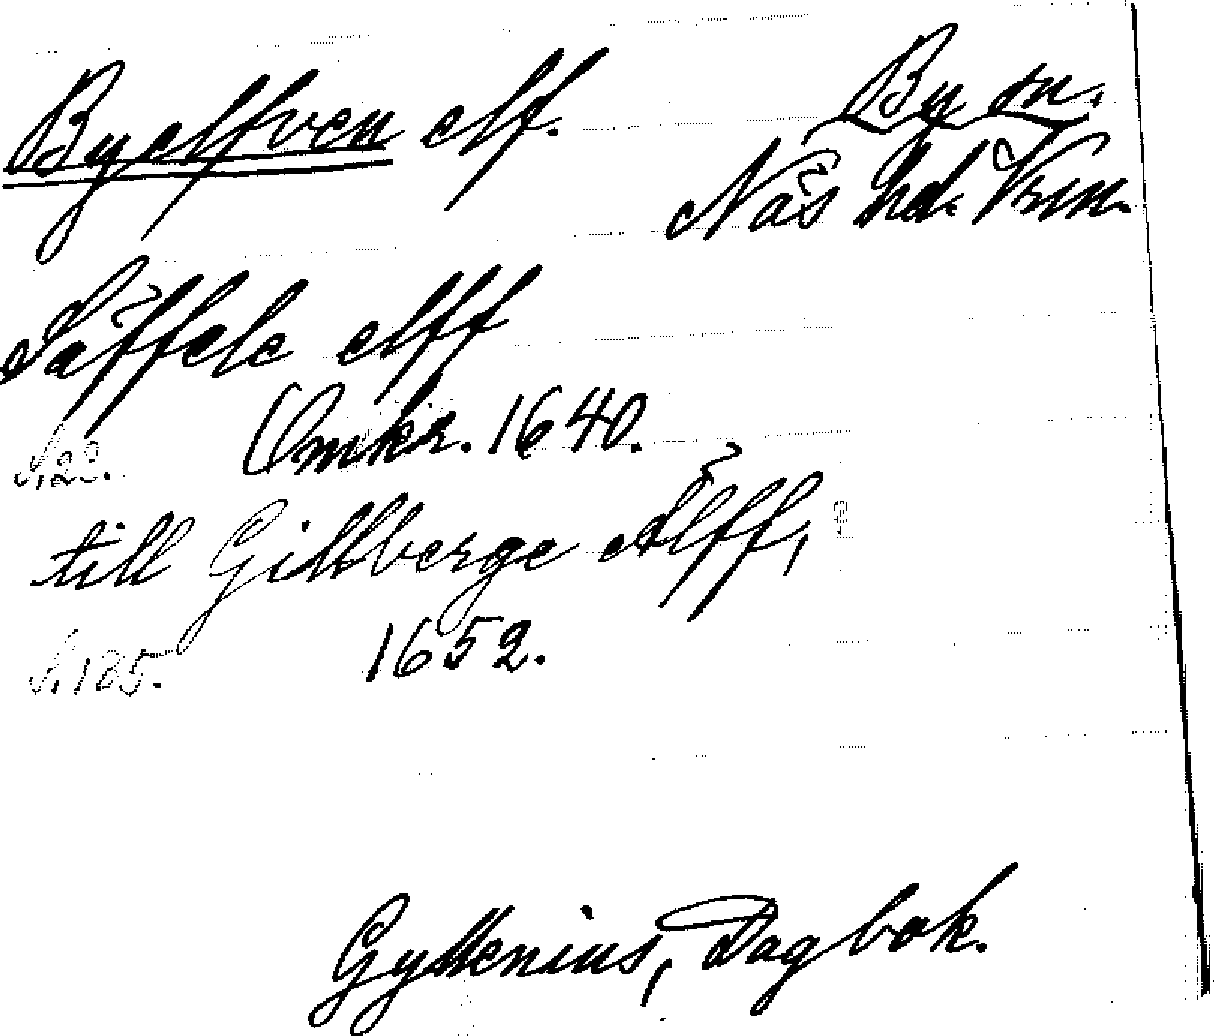 Byelfven elf. By sn.
Näs hd. Vrm.
Säffele elff
S. 23. Omkr. 1640.
till Gillberge Älff,
S. 185. 1652.
Gyllenius, Dagbok.